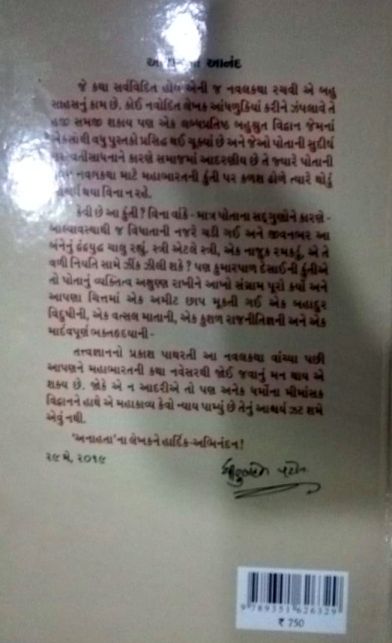 આનંદ
જે કથા સર્વવિદિત હોય એની જ નવલકથા રચવી એ બહુ
સાહસનું કામ છે. કોઈ નવોદિત લેખક આંધળુકિયાં કરીને ઝંપલાવે તે
હજી સમજી શકાય પણ એક લબ્ધપ્રતિષ્ઠ બહુશ્રુત વિદ્વાન જેમનાં
એકસોથી વધુ પુસ્તકો પ્રસિદ્ધ થઈ ચૂક્યાં છે અને જેઓ પોતાની સુદીર્ઘ
સાધનાને કારણે સમાજમાં આદરણીય છે તે જ્યારે પોતાની
નવલકથા માટે મહાભારતની કુંતી પર કળશ ઢોળે ત્યારે થોડું
થયા વિના ન રહે.
કેવી છે આ કુંતી? વિના વાંકે - માત્ર પોતાના સદ્ગુણોને કારણે -
બાલ્યાવસ્થાથી જ વિધાતાની નજરે ચડી ગઈ અને જીવનભર આ
બંનેનું દ્વંદ્વયુદ્ધ ચાલુ રહ્યું. સ્ત્રી એટલે સ્ત્રી, એક નાજુક રમકડું, એ તે
વળી નિયતિ સામે ઝીંક ઝીલી શકે? પણ કુમારપાળ દેસાઈની કુંતીએ
તો પોતાનું વ્યક્તિત્વ અક્ષુણ્ણ રાખીને આખો સંગ્રામ પૂરો કર્યો અને
આપણા ચિત્તમાં એક અમીટ છાપ મૂકતી ગઈ એક બહાદુર
વિદુષીની, એક વત્સલ માતાની, એક કુશળ રાજનીતિજ્ઞની અને એક
માર્દવપૂર્ણ ભક્તહૃદયાની -
તત્ત્વજ્ઞાનનો પ્રકાશ પાથરતી આ નવલકથા વાંચ્યા પછી
આપણને મહાભારતની કથા નવેસરથી જોઈ જવાનું મન થાય એ
શક્ય છે. જોકે એ ન આદરીએ તો પણ અનેક ધર્મોના મીમાંસક
વિદ્વાનને હાથે એ મહાકાવ્ય કેવો ન્યાય પામ્યું છે તેનું આશ્ચર્ય ઝટ શમે
એવું નથી.
'અનાહતા'ના લેખકને હાર્દિક-અભિનંદન!
૨૯ મે, ૨૦૧૯
9 789351 626329
₹ 750